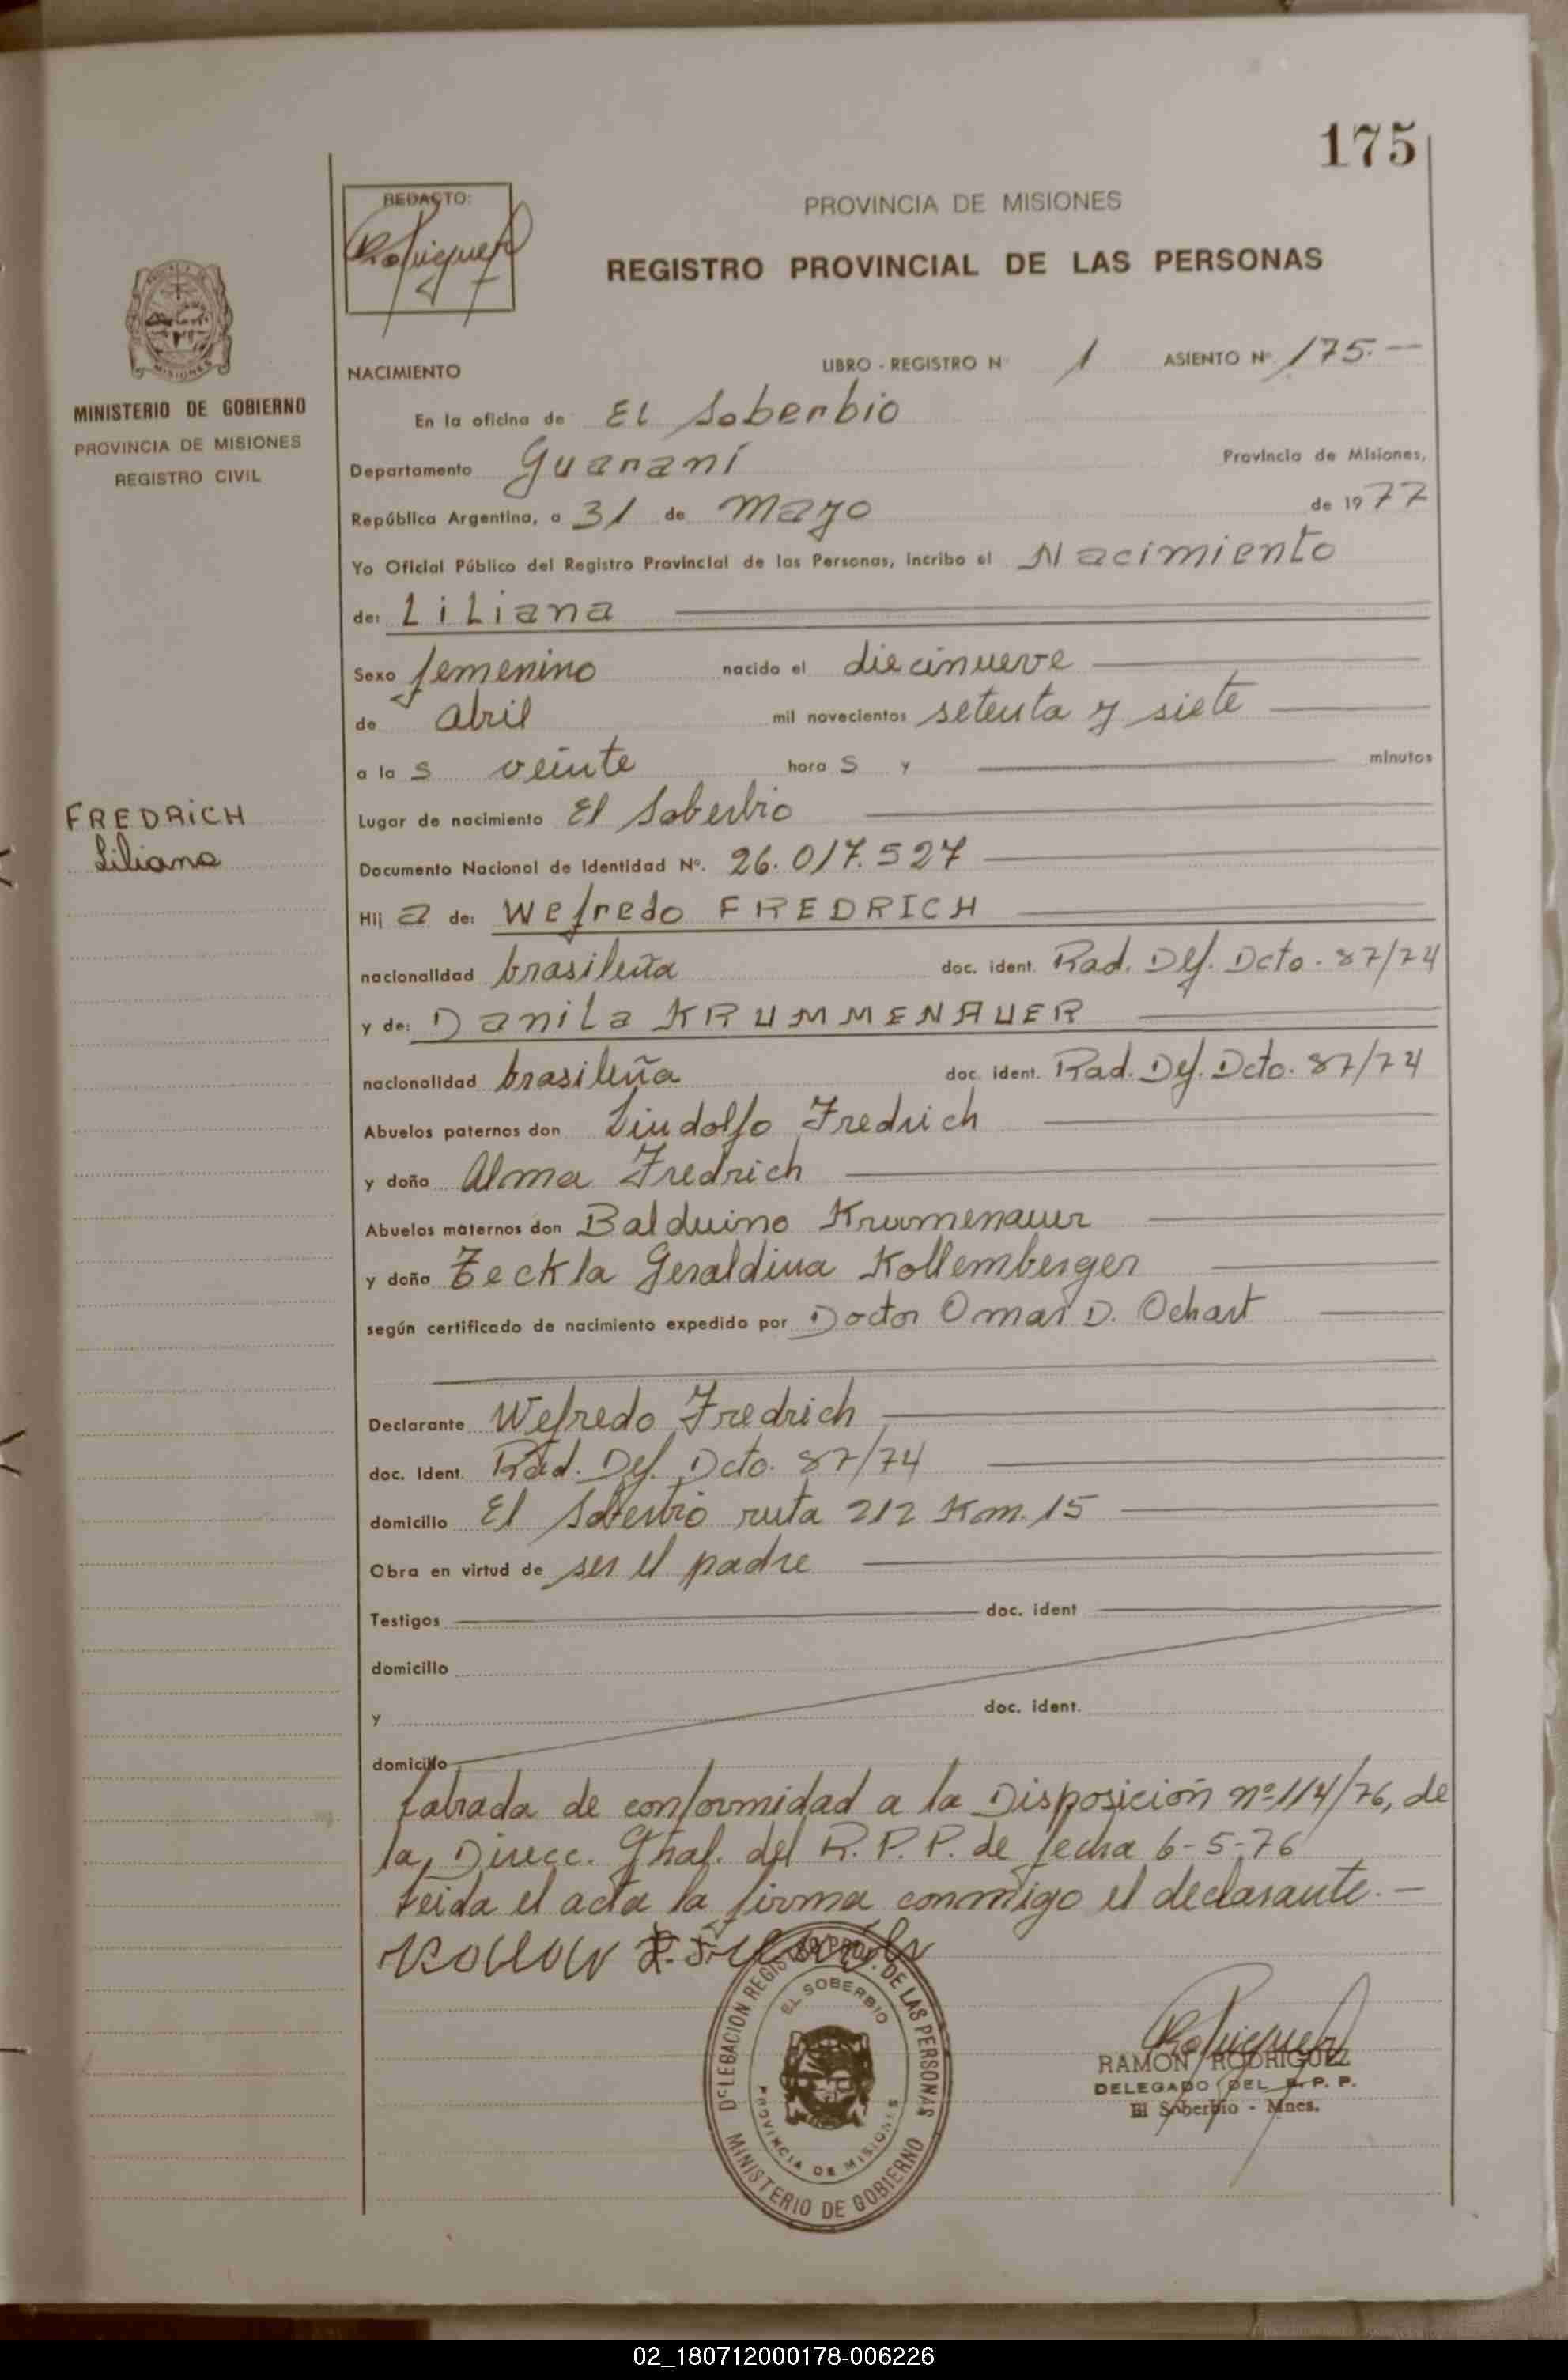 175
REDACTO:
PROVINCIA DE MISIONES
REGISTRO PROVINCIAL DE LAS PERSONAS
MISIONES
MINISTERIO DE GOBIERNO
PROVINCIA DE MISIONES
REGISTRO CIVIL
NACIMIENTO LIBRO - REGISTRO Nº 1 ASIENTO Nº 175.—
En la oficina de El Soberbio
Departamento Guaraní Provincia de Misiones,
República Argentina, a 31 de Mayo de 1977
Yo Oficial Público del Registro Provincial de las Personas, Incribo el Nacimiento
de: Liliana
Sexo femenino nacido el diecinueve
de abril mil novecientos setenta y siete
a las veinte horas y minutos
FREDRICH
Liliana
Lugar de nacimiento El Soberbio
Documento Nacional de Identidad Nº. 26.017.527
Hija de: Wefredo FREDRICH
nacionalidad brasileña doc. ident. Rad. Def. Dcto. 87/74
y de: Danila KRUMMENAUER
nacionalidad brasileña doc. ident. Rad. Def. Dcto. 87/74
Abuelos paternos don Lindolfo Fredrich
y doña Alma Fredrich
Abuelos maternos don Balduino Krumenauer
y doña Teckla Geraldina Kollemberger
según certificado de nacimiento expedido por Doctor Omar D. Ochart
Declarante Wefredo Fredrich
doc. Ident. Rad. Def. Dcto. 87/74
domicilio El Soberbio ruta 212 Km. 15
Obra en virtud de ser el padre
Testigos doc. ident
domicilio
y doc. ident.
domicilio
labrada de conformidad a la Disposición nº 114/76, de
la Direcc. Gral. del R.P.P. de fecha 6-5-76
Leída el acta la firma conmigo el declarante.—
DELEGACION REGISTRO PROV. DE LAS PERSONAS
EL SOBERBIO
PROVINCIA DE MISIONES
MINISTERIO DE GOBIERNO
RAMON RODRIGUEZ
DELEGADO DEL R. P. P.
El Soberbio - Mnes.
02_180712000178-006226